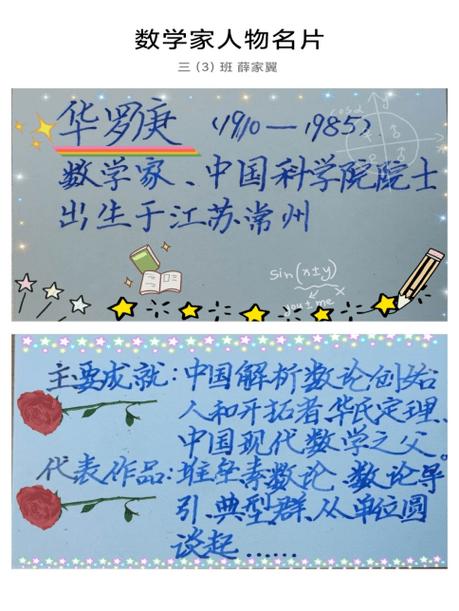 数学家人物名片
三（3）班 薛家翼
华罗庚（1910—1985）
cosα
数学家、中国科学院院士
出生于江苏常州
sin(x±y)
you+me
主要成就：中国解析数论创始
人和开拓者、华氏定理、
中国现代数学之父。
代表作品：堆垒素数论、数论导
引、典型群、从单位圆
谈起……